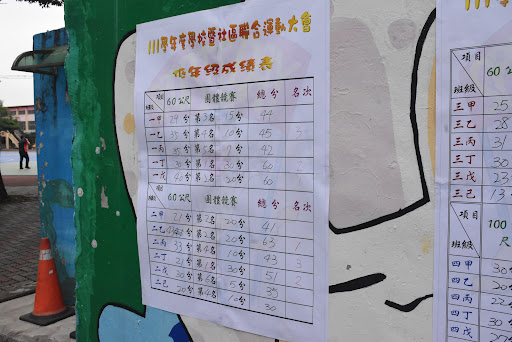 111學年度學校暨社區聯合運動大會
低年級成績表
項目 60公尺 團體競賽 總分 名次
班級
一甲 29分 第3名 15分 44
一乙 35分 第4名 10分 45 3
一丙 第5名 42
一丁 30分 第 名 30分 60
一戊 40分 第2名 20分 60
項目 60公尺 團體競賽 總分 名次
班級
二甲 21分 第2名 20分 41
二乙 43分 第2名 20分 63 1
二丙 33分 第4名 10分 43 3
二丁 21分 第1名 30分 51 2
二戊 30分 第6名 5分 35
二己 20分 第4名 10分 30
項目 60公
班級
三甲 25
三乙 28
三丙 31
三丁 30
三戊 23
三己 13
項目 100公尺
班級
四甲 30
四乙 20
四丙 22
四丁 30
四戊